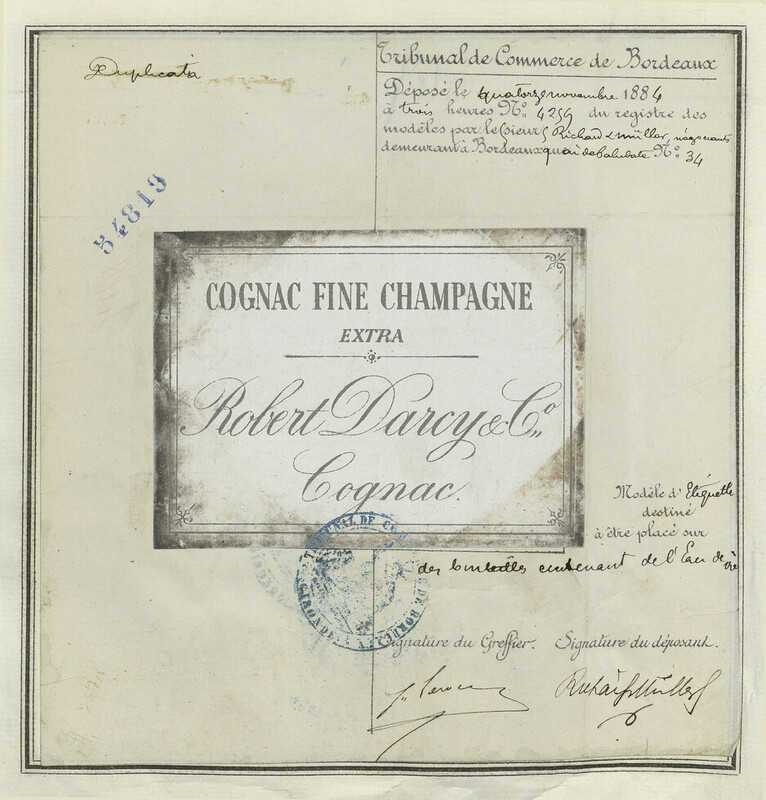 Duplicata
Tribunal de Commerce de Bordeaux
Déposé le quatorze novembre 1884
à trois heures Nº 4259 du registre des
modèles par le(sieurs Richard & Müller, négociants
demeurant à Bordeaux quai de Nº 34
54819
COGNAC FINE CHAMPAGNE
EXTRA
Robert Darcy & Cº
Cognac.
Modèle d'Etiquette
destiné
à être placé sur
des bouteilles contenant de l'Eau de vie
TRIBUNAL DE CO
DE BORDEAUX
GIRONDE
Signature du Greffier. Signature du déposant.
Richard & Müller